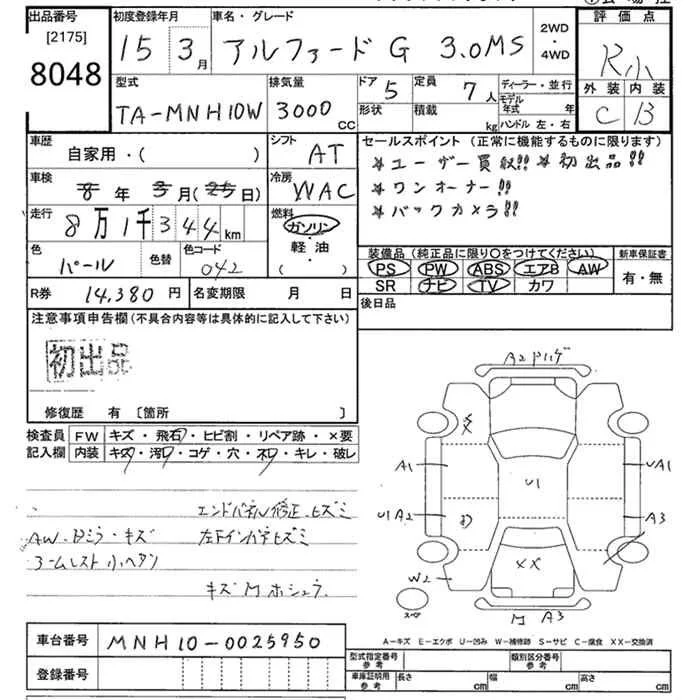 出品番号 初度登録年月 車名・グレード 評価点
[2175] 8048
15 3月 アルファード G 3.0MS 2WD・4WD R小
型式 排気量 ドア 5 定員 7人 ディーラー・並行 外装 内装
TA-MNH10W 3000 CC 形状 積載 kg モデル年式 年 ハンドル 左・右 C B
車歴 シフト セールスポイント (正常に機能するものに限ります)
自家用・( ) AT ★ユーザー買取!! ★初出品!!
車検 8年 3月(25日) 冷房 WAC ★ワンオーナー!!
走行 8万1千344km 燃料 ガソリン 軽・油 ( ) ★バックカメラ!!
色 パール 色替 色コード 042
装備品 (純正品に限り○をつけてください) 新車保証書
PS PW ABS エアB AW 有・無
SR ナビ TV カワ
R券 14,380円 名変期限 月 日 後日品
注意事項申告欄(不具合内容等は具体的に記入して下さい)
初出品
修復歴 有 〔箇所 〕
検査員 FW キズ・飛石・ヒビ割・リペア跡・×要
記入欄 内装 キズ・汚レ・コゲ・穴・ネジ・キレ・破レ
エンドパネル修正、ヒズミ
AW、Dミラー・キズ 左下インパネヒズミ
小ヘタン
キズ
A2
A1
U1
UA1
U1 A2
A3
XX
W2
A3
スペア
A-キズ E-エクボ U-凹み W-補修跡 S-サビ C-腐食 XX-交換済
車台番号 MNH10-0025950
登録番号
型式指定番号 参考 類別区分番号 参考
車庫証明用 参考 長さ cm 幅 cm 高さ cm